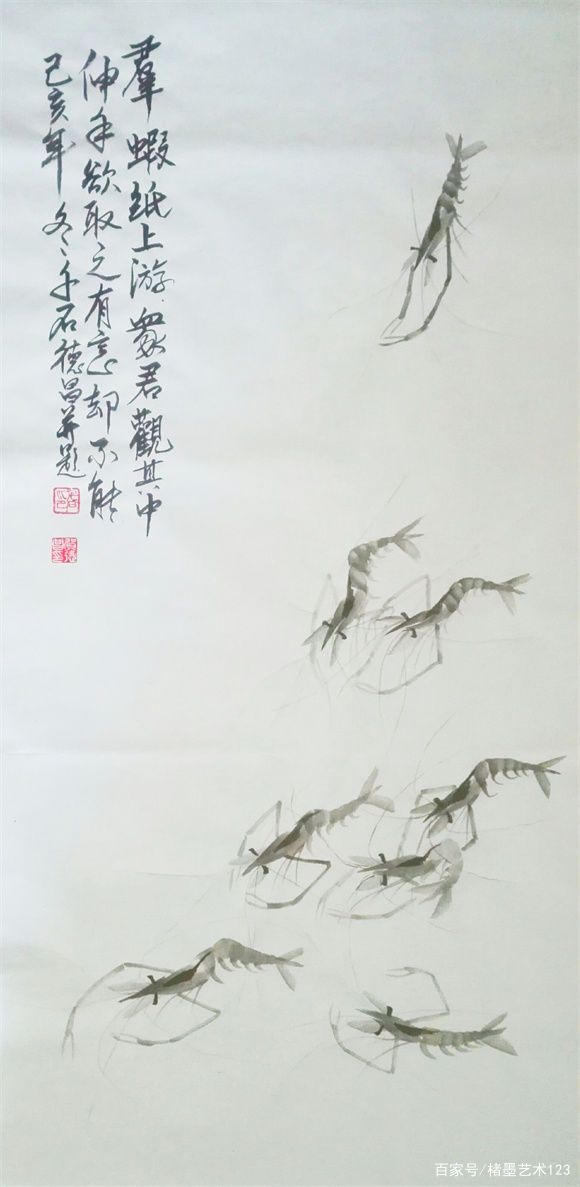 羣蝦紙上游.眾君觀其中
伸手欲取之有意却不能
己亥年冬冬千石德昌并題
百家号/楮墨艺术123